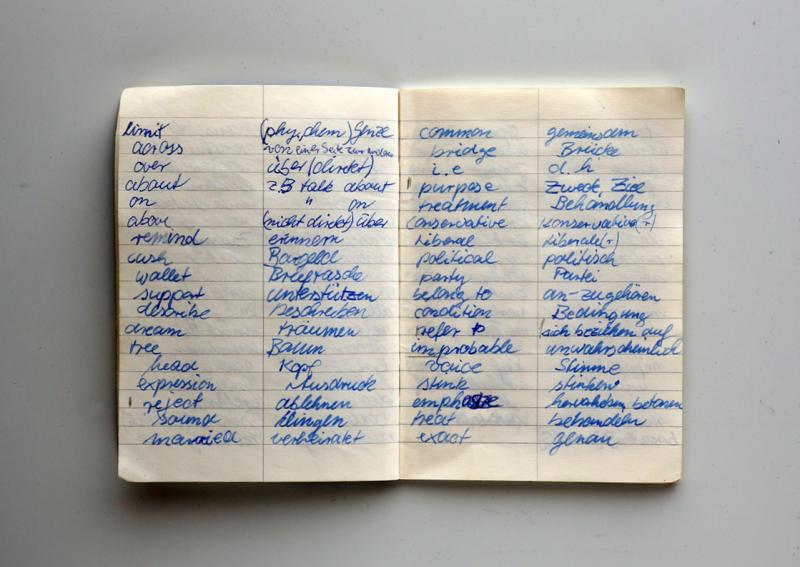 limit (phy, chem) Genze
across von einer Seite zur anderen
over über (direkt)
about z.B talk about
on " on
above (nicht direkt) über
remind erinnern
cash Bargeld
wallet Brieftasche
support unterstützen
describe beschreiben
dream träumen
tree Baum
head Kopf
expression Ausdruck
reject ablehnen
sound klingen
married verheiratet
common gemeinsam
bridge Brücke
i.e d.h
purpose Zweck, Ziel
treatment Behandlung
conservative konservative(r)
liberal liberale(r)
political politisch
party Partei
belong to an-zugehören
condition Bedingung
refer to sich beziehen auf
improbable unwahrscheinlich
voice Stimme
stink stinken
emphasize hervorheben betonen
treat behandeln
exact genau